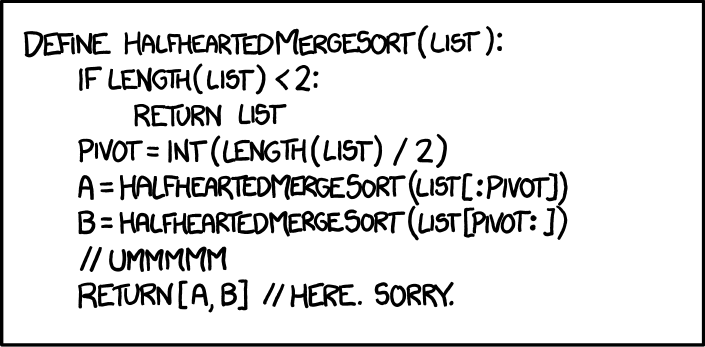 DEFINE HALFHEARTEDMERGESORT(LIST):
IF LENGTH(LIST) < 2:
RETURN LIST
PIVOT = INT(LENGTH(LIST) / 2)
A = HALFHEARTEDMERGESORT(LIST[:PIVOT])
B = HALFHEARTEDMERGESORT(LIST[PIVOT:])
// UMMMMM
RETURN[A, B] // HERE. SORRY.